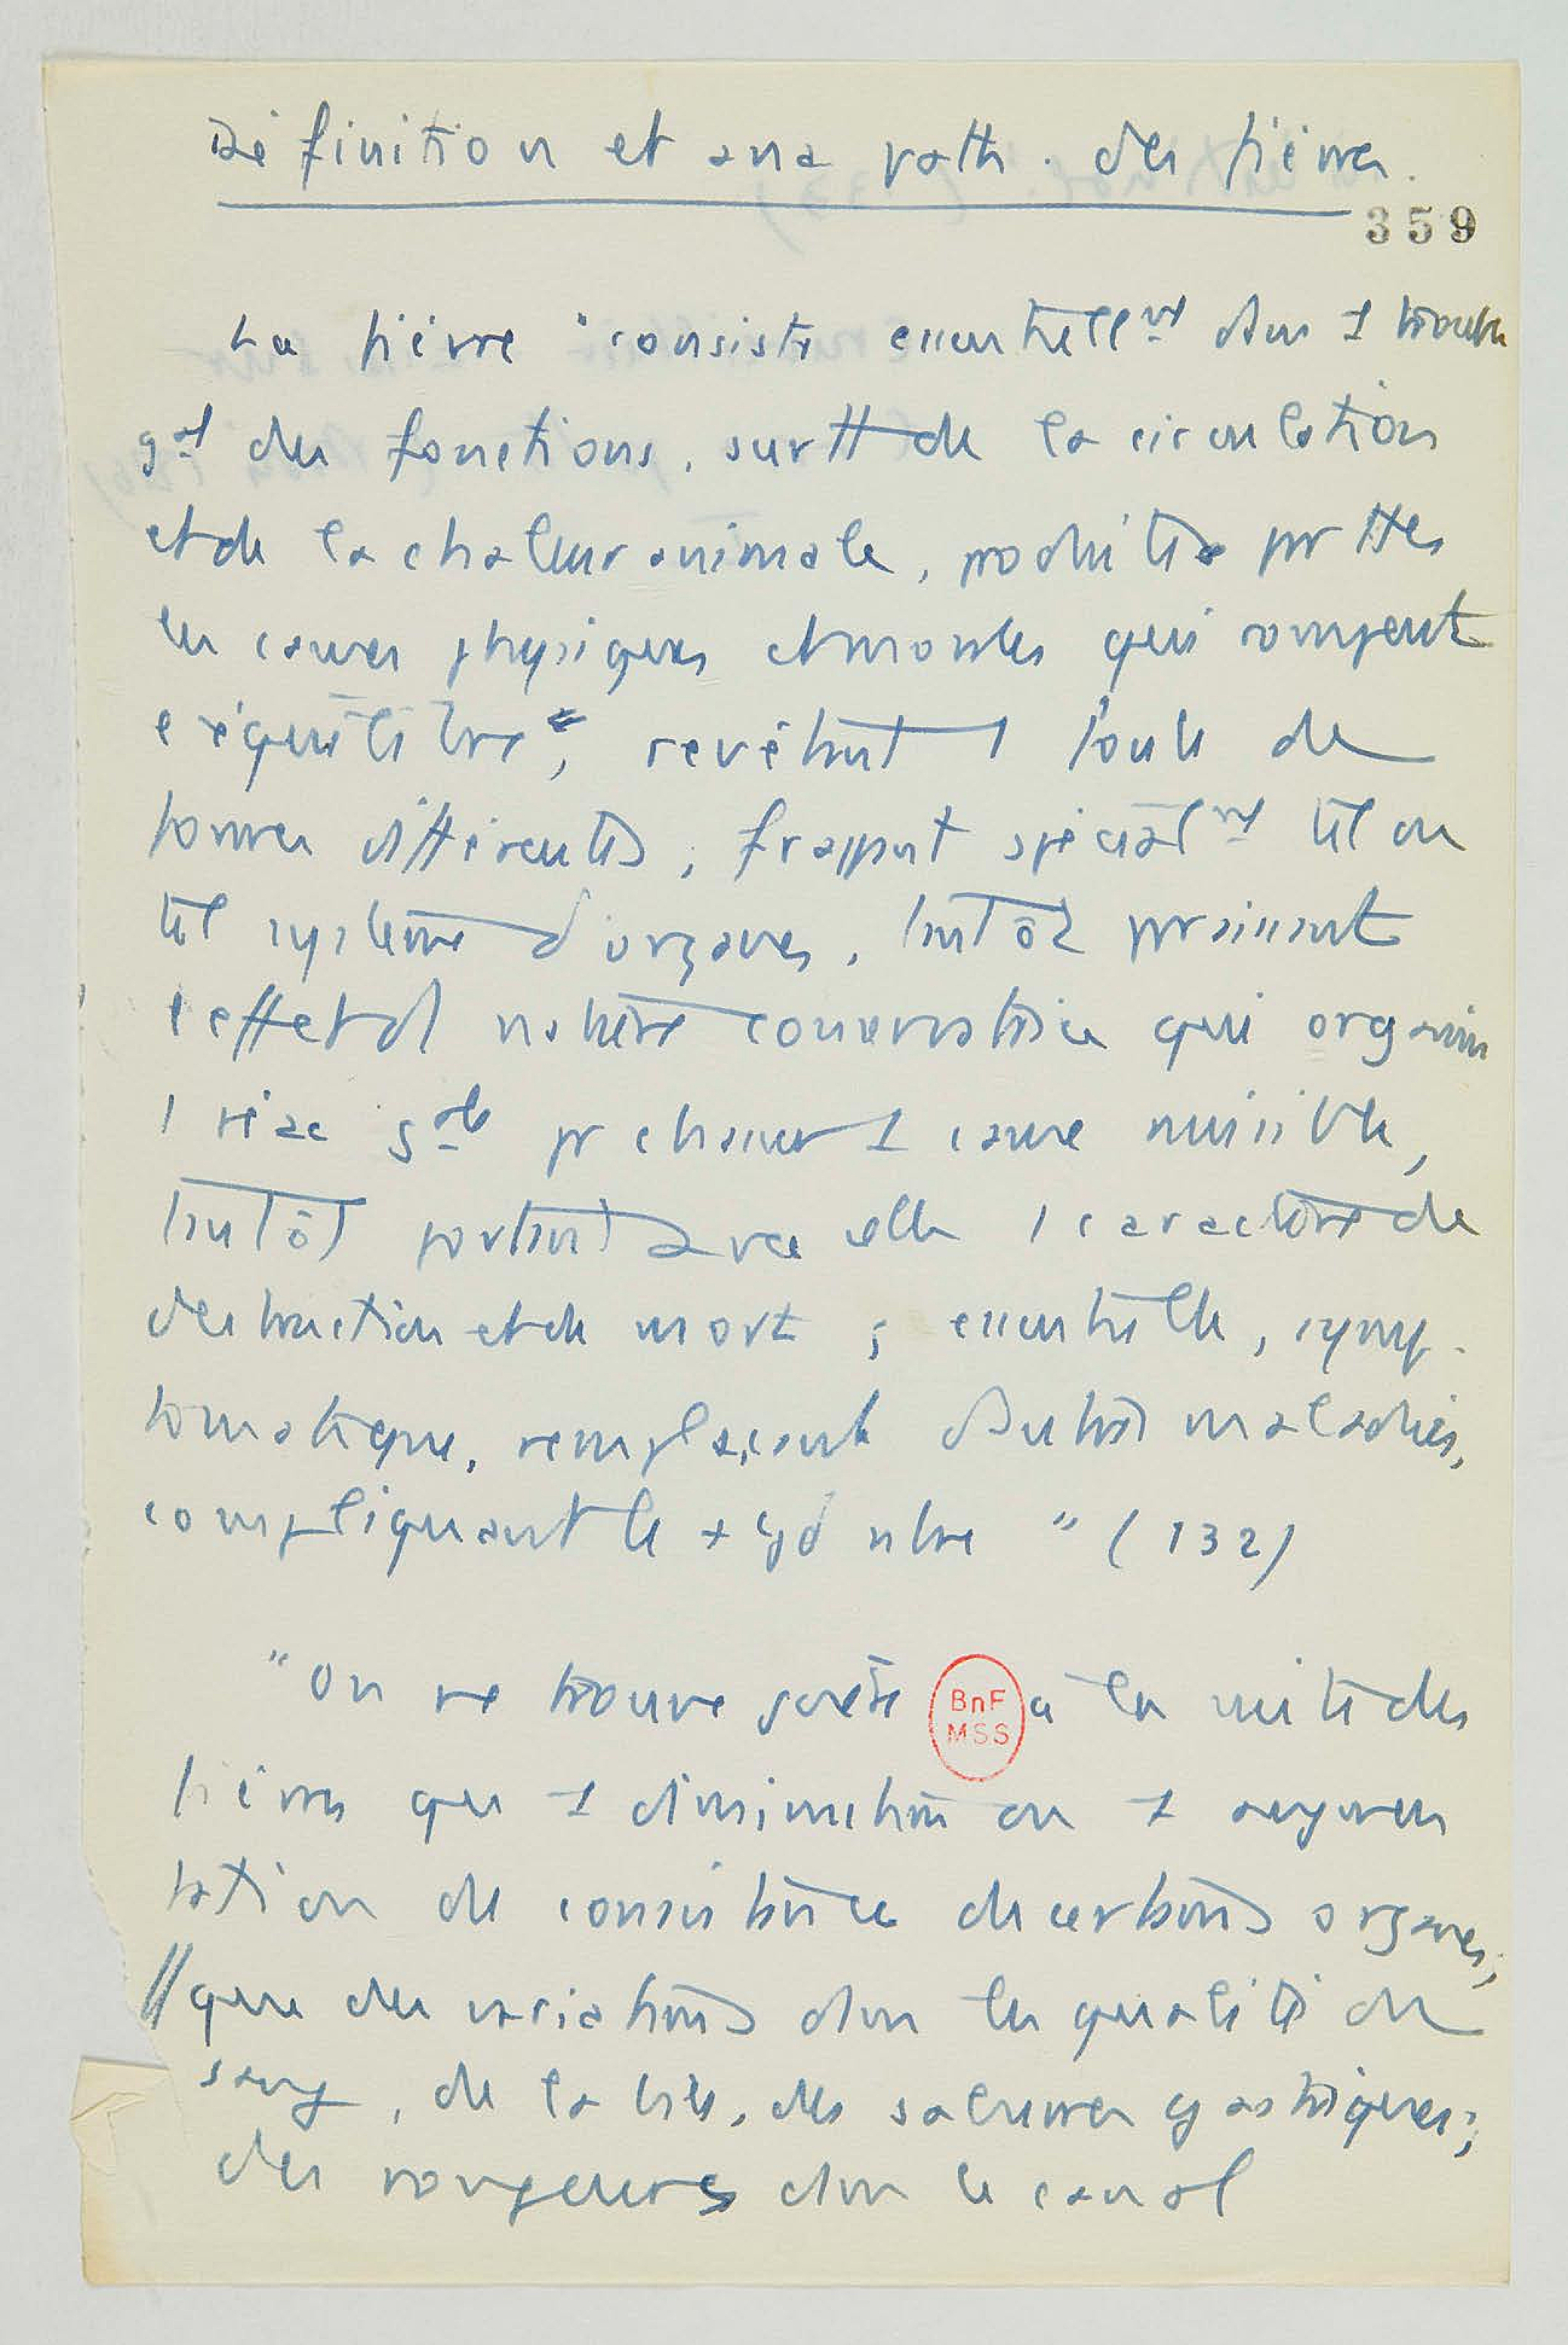 Définition et ana path. des fièvres.
359
La fièvre "consiste essentiellmt dans 1 trouble
gal des fonctions, surtt de la circulation
et de la chaleur animale, produites pr ttes
les causes physiques et morales qui rompent
l'équilibre", revêtant 1 foule de
formes différentes, frappant spécialmt tel ou
tel système d'organes, tantôt paraissant
l'effet d1 nature conservatrice qui organise
1 réac gale pr chasser 1 cause nuisible,
tantôt portant avec elle 1 caractère de
destruction et de mort ; essentielle, symp-
tomatique, remplaçant d'autres maladies,
compliquant le + gd nbre" (132)
"On ne trouve guère à la suite des
fièvres que 1 diminution ou 1 augmen
tation de consistance de certains organes;
// que des variations dans les qualités du
sang, de la bile, des saburres gastriques;
des rougeurs dans le canal
BnF
MSS